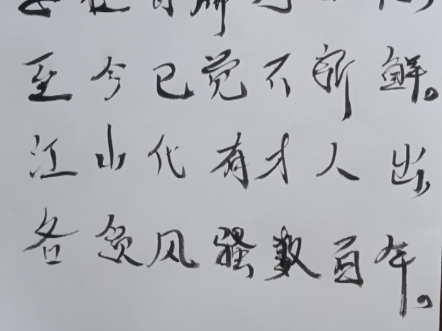 至今已觉不新鲜。
江山代有才人出，
各领风骚数百年。